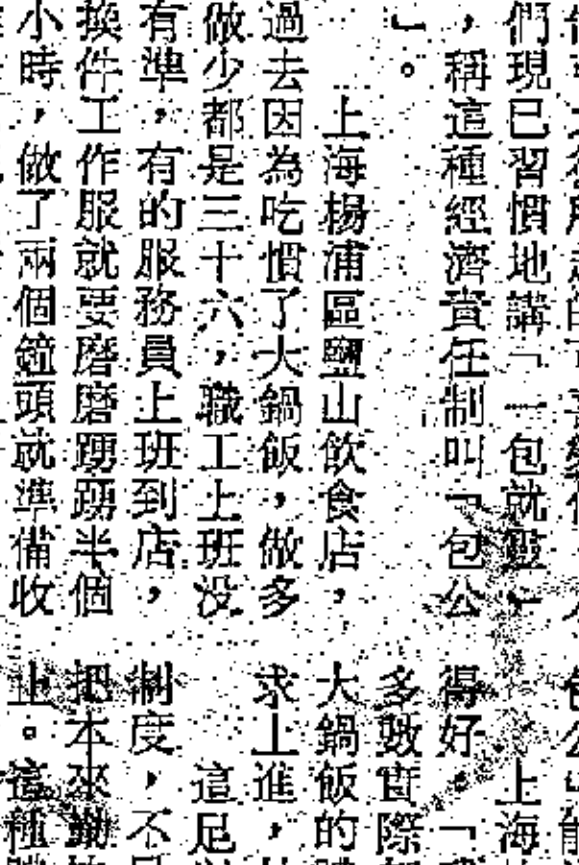 們現已習慣地講「一包就靈」
，稱這種經濟責任制叫「包公
」。
上海楊浦區鹽山飲食店，
過去因為吃慣了大鍋飯，做多
做少都是三十六，職工上班沒
有準，有的服務員上班到店，
換件工作服就要磨磨踴踴半個
小時，做了兩個鐘頭就準備收
上海
得好，「
多數實際
大鍋飯的
求上進，
這足
制度，不
把本來勤
止。這種